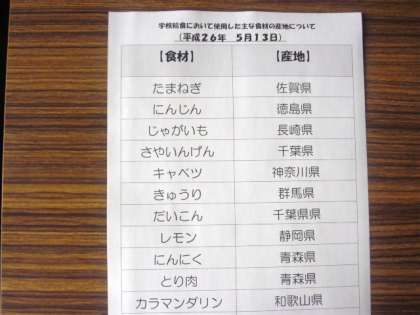 学校給食において使用した主な食材の産地について
（平成２６年　５月１３日）
【食材】　【産地】
たまねぎ　佐賀県
にんじん　徳島県
じゃがいも　長崎県
さやいんげん　千葉県
キャベツ　神奈川県
きゅうり　群馬県
だいこん　千葉県県
レモン　静岡県
にんにく　青森県
とり肉　青森県
カラマンダリン　和歌山県